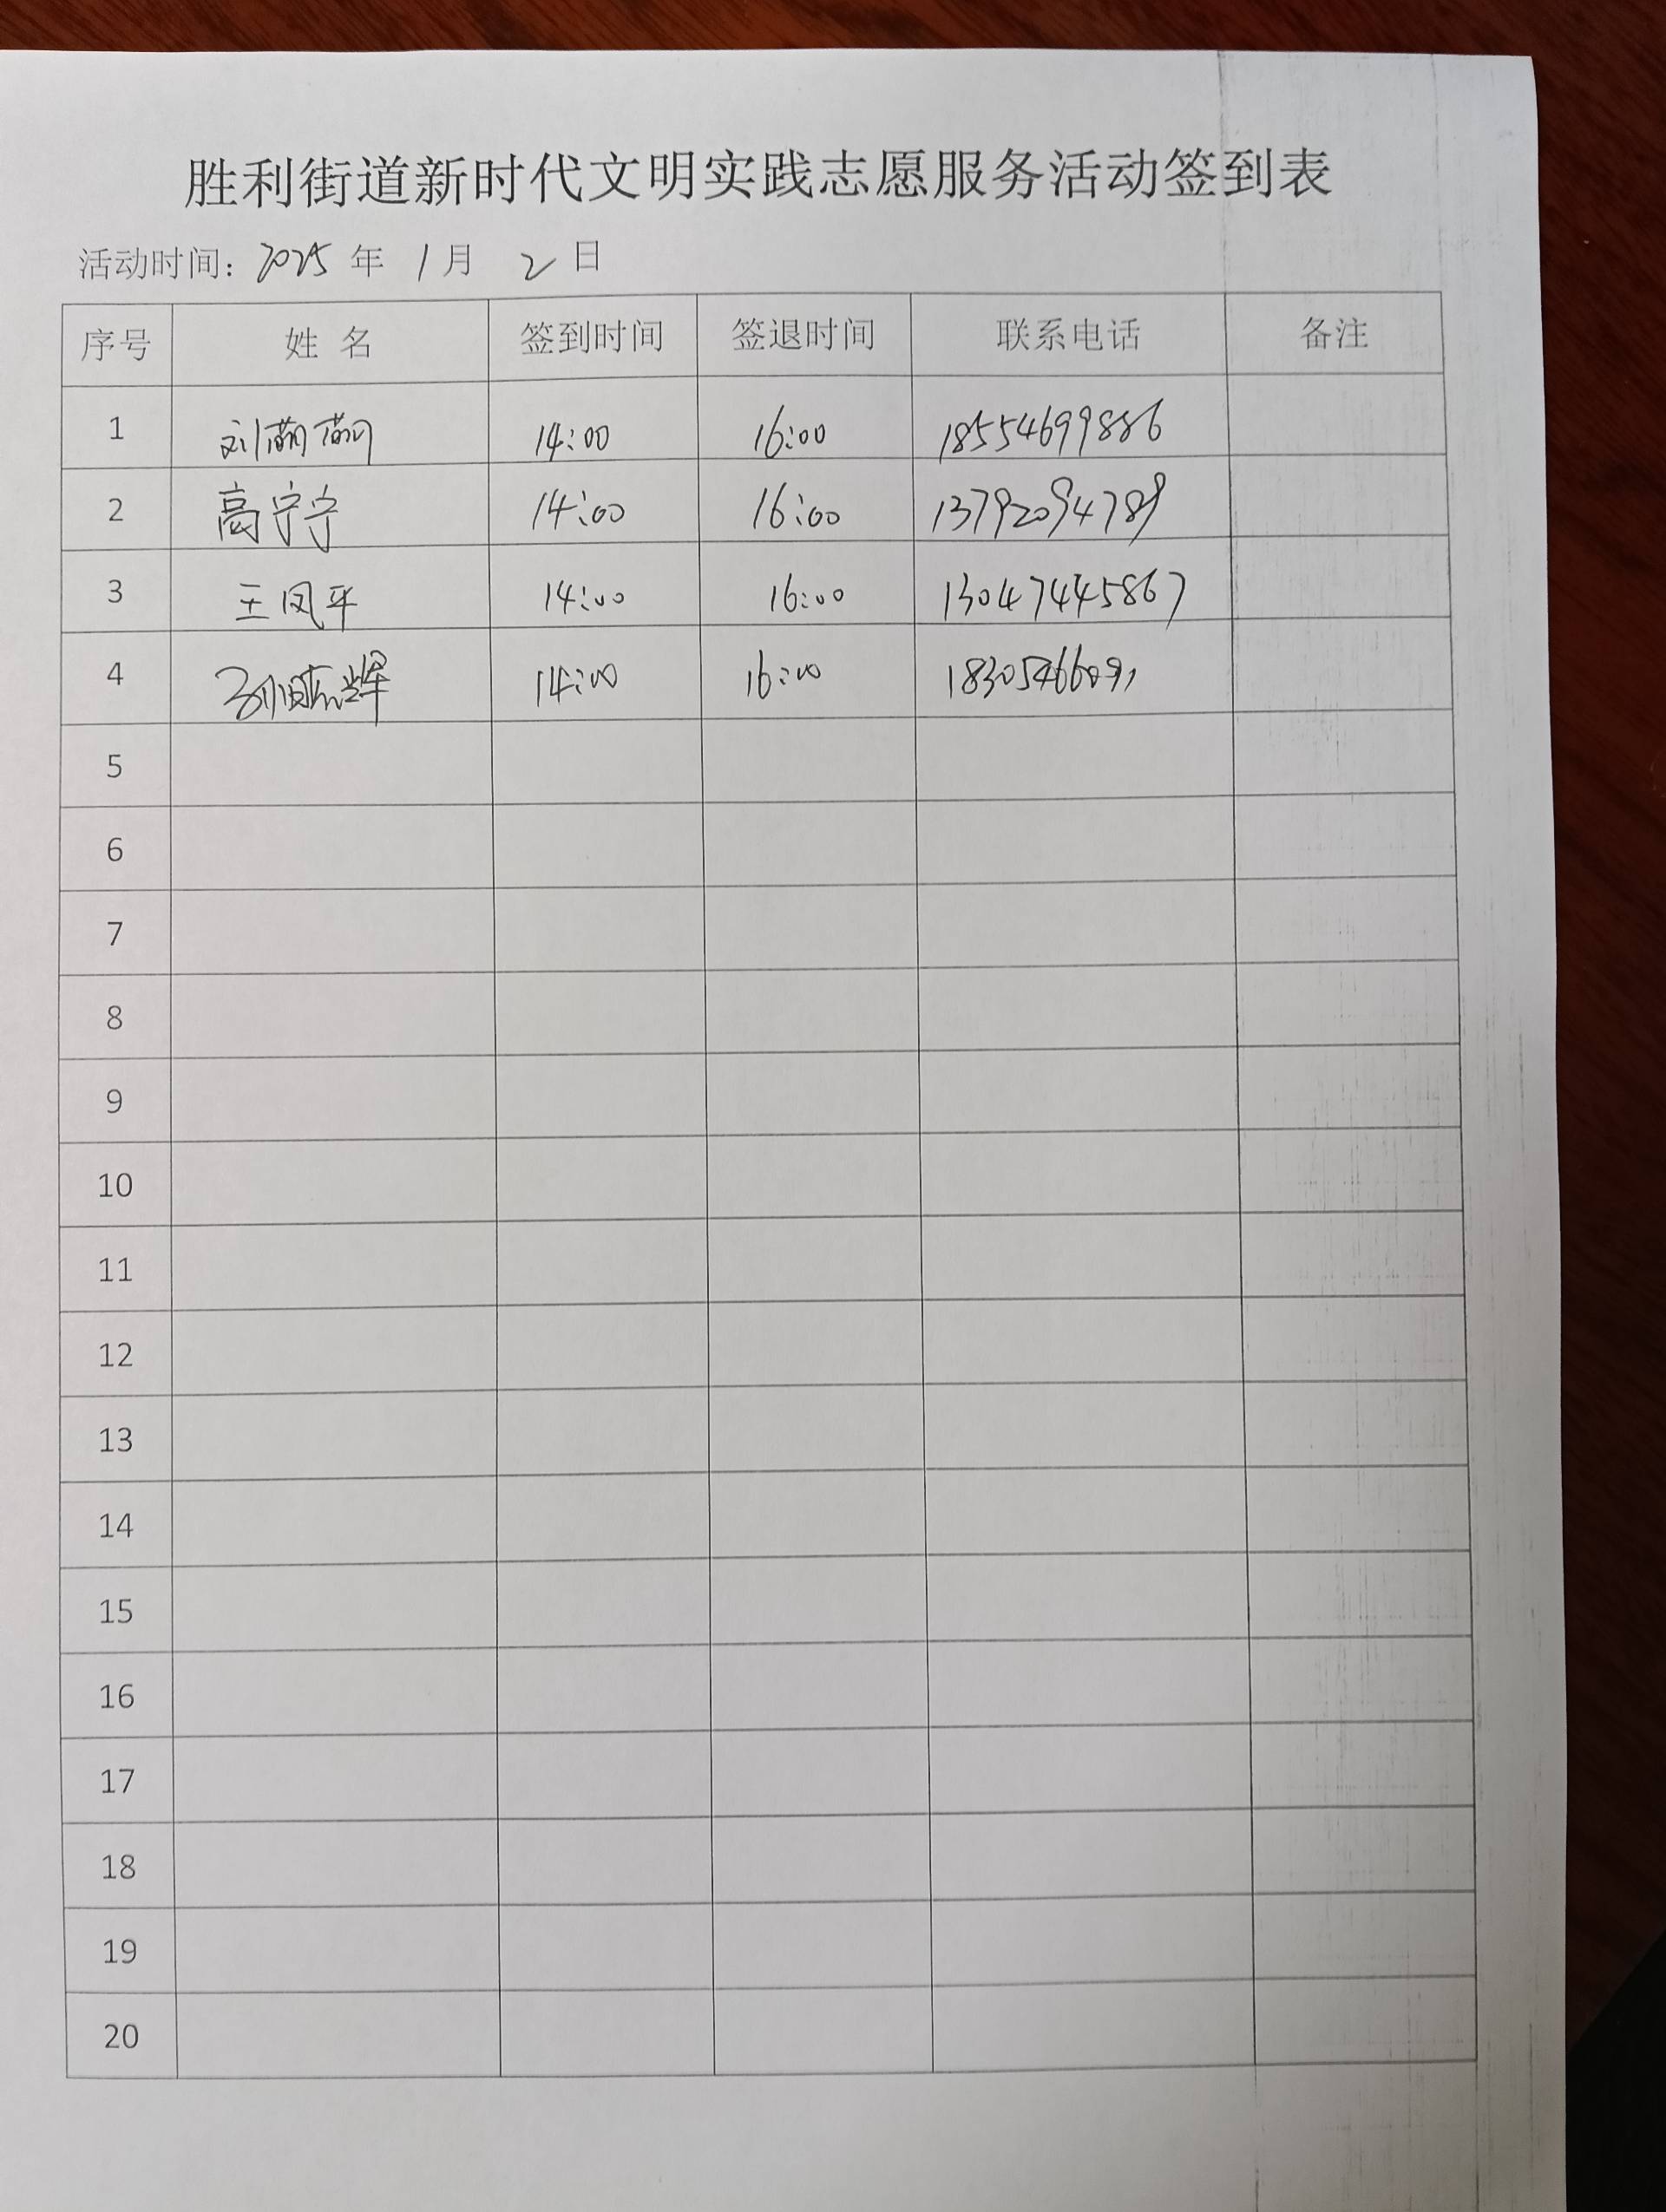 胜利街道新时代文明实践志愿服务活动签到表
活动时间: 2025 年 1 月 2 日
序号 姓 名 签到时间 签退时间 联系电话 备注
1 刘萌萌 14:00 16:00 18554699886
2 高宁宁 14:00 16:00 13792094789
3 王凤平 14:00 16:00 13047445867
4 14:00 16:00
5
6
7
8
9
10
11
12
13
14
15
16
17
18
19
20